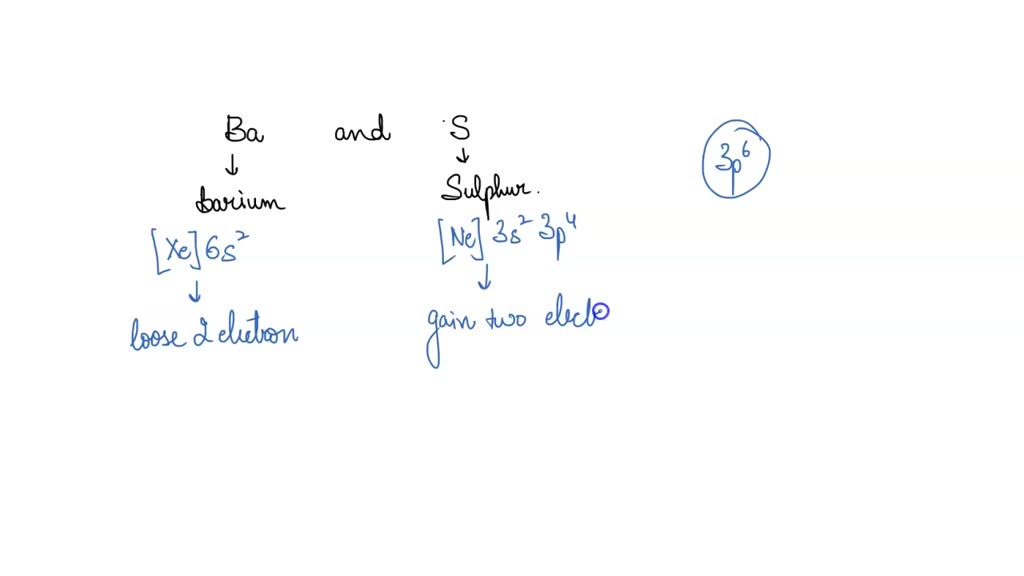 Ba and S
3p⁶
↓ ↓
barium Sulphur.
[Xe] 6s² [Ne] 3s² 3p⁴
↓ ↓
loose 2 eletron gain two electo